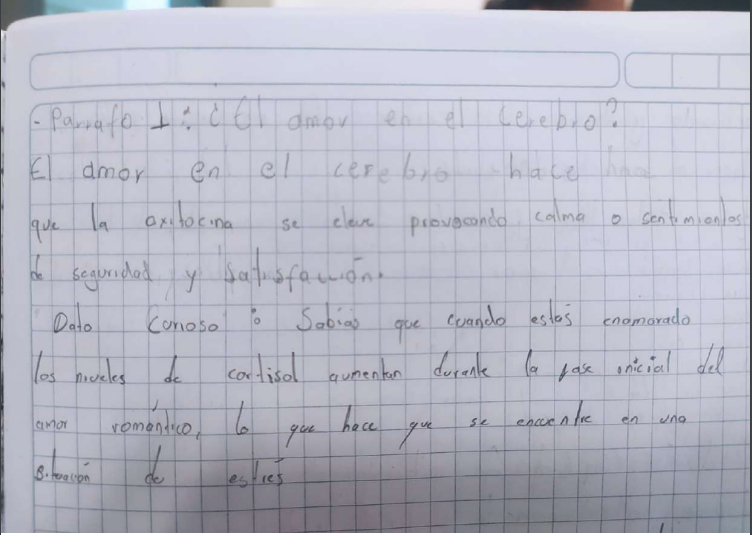 - Parrafo 1: ¿El amor en el cerebro?
El amor en el cerebro hace
que la oxitocina se eleve provocando calma o sentimientos
de seguridad y satisfacción.
Dato Curioso: Sabías que cuando estás enamorado
los niveles de cortisol aumentan durante la fase inicial del
amor romántico, lo que hace que se encuentre en una
situación de estrés